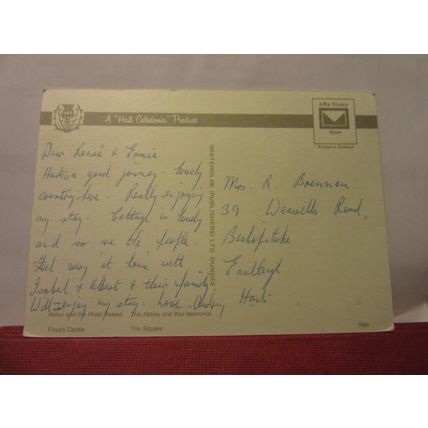 A "Hail Caledonia" Product
Affix Stamp
Here
Printed in Scotland
Dear Reneé & Ernie
Had a good journey. Lovely
country here. Really enjoying
my stay. Cottage is lovely
and so are the people.
Feel very at home with
Isabel & Albert & their family
Will enjoy my stay. Love Audrey
WHITEHOLME (PUBLISHERS) LTD. DUNDEE
Mrs. R. Brennan
39 Weavills Road,
Bishopstoke
Eastleigh
Hants
Kelso and the River Tweed The Abbey and War Memorial
Floors Castle The Square